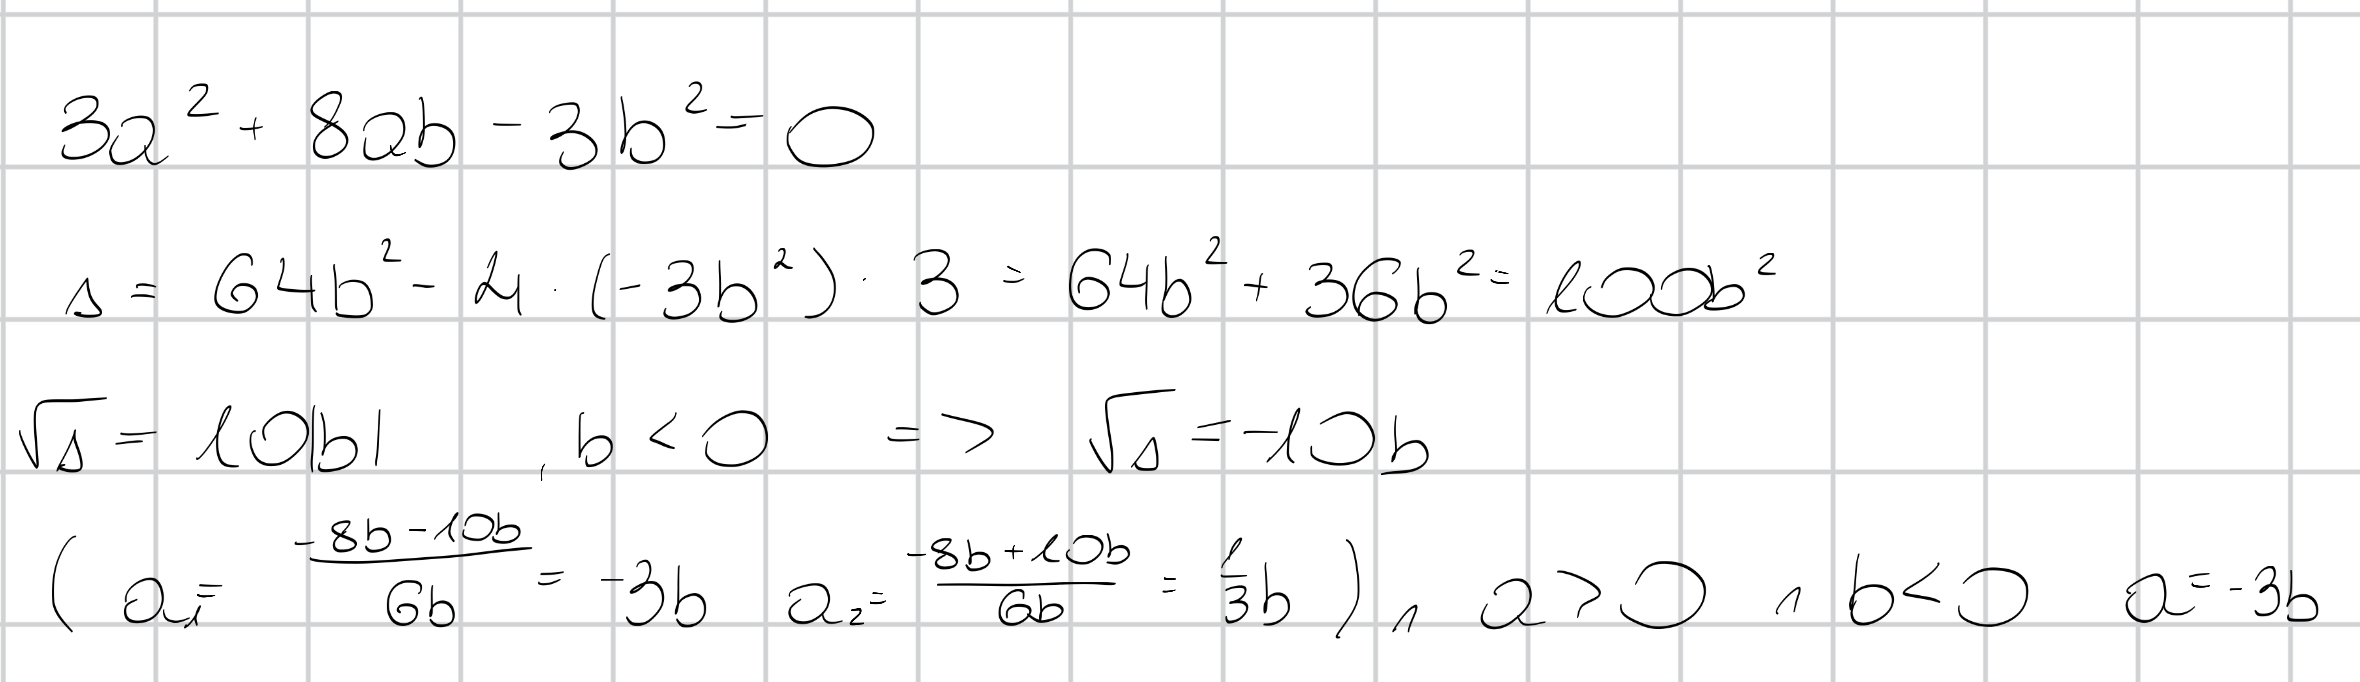 3a² + 8ab - 3b² = 0
Δ = 64b² - 4 · (-3b²) · 3 = 64b² + 36b² = 100b²
√Δ = 10|b| , b < 0 => √Δ = -10b
( a₁ = (-8b - 10b)/(6b) = -3b a₂ = (-8b + 10b)/(6b) = 1/3 b ) ∧ a > 0 ∧ b < 0 a = -3b